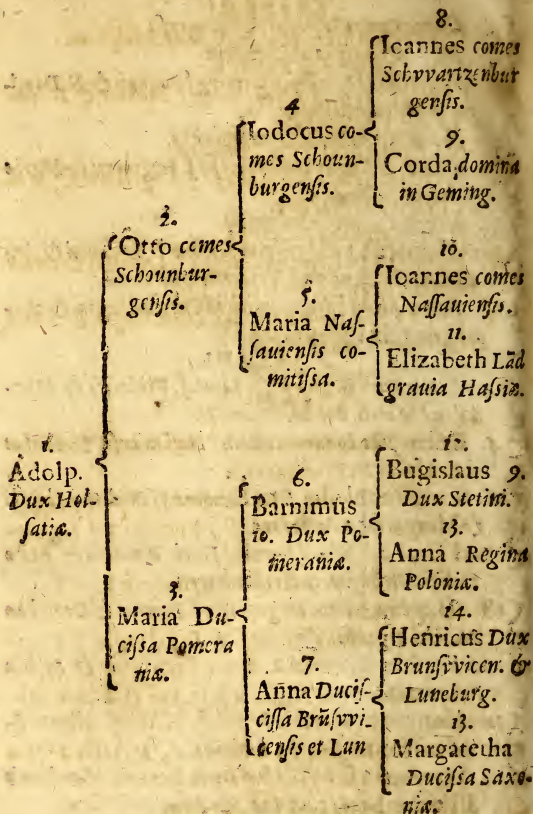 1.
Adolp.
Dux Hol-
satiæ.
2.
Otto comes
Schounbur-
gensis.
3.
Maria Du-
cissa Pomera
niæ.
4
Iodocus co-
mes Schoun-
burgensis.
5.
Maria Nas-
sauiensis co-
mitissa.
6.
Barnimus
10. Dux Po-
meraniæ.
7.
Anna Ducis-
cissa Brūsvvi-
censis et Lun
8.
Ioannes comes
Schvvartzenbur
gensis.
9.
Corda domina
in Geming.
10.
Ioannes comes
Nassauiensis.
11.
Elizabeth Lād
grauia Hassiæ.
12.
Bugislaus 9.
Dux Stetini.
13.
Anna Regina
Poloniæ.
14.
Henricus Dux
Brunsvvicen. &
Luneburg.
13.
Margaretha
Ducissa Saxo-
niæ.